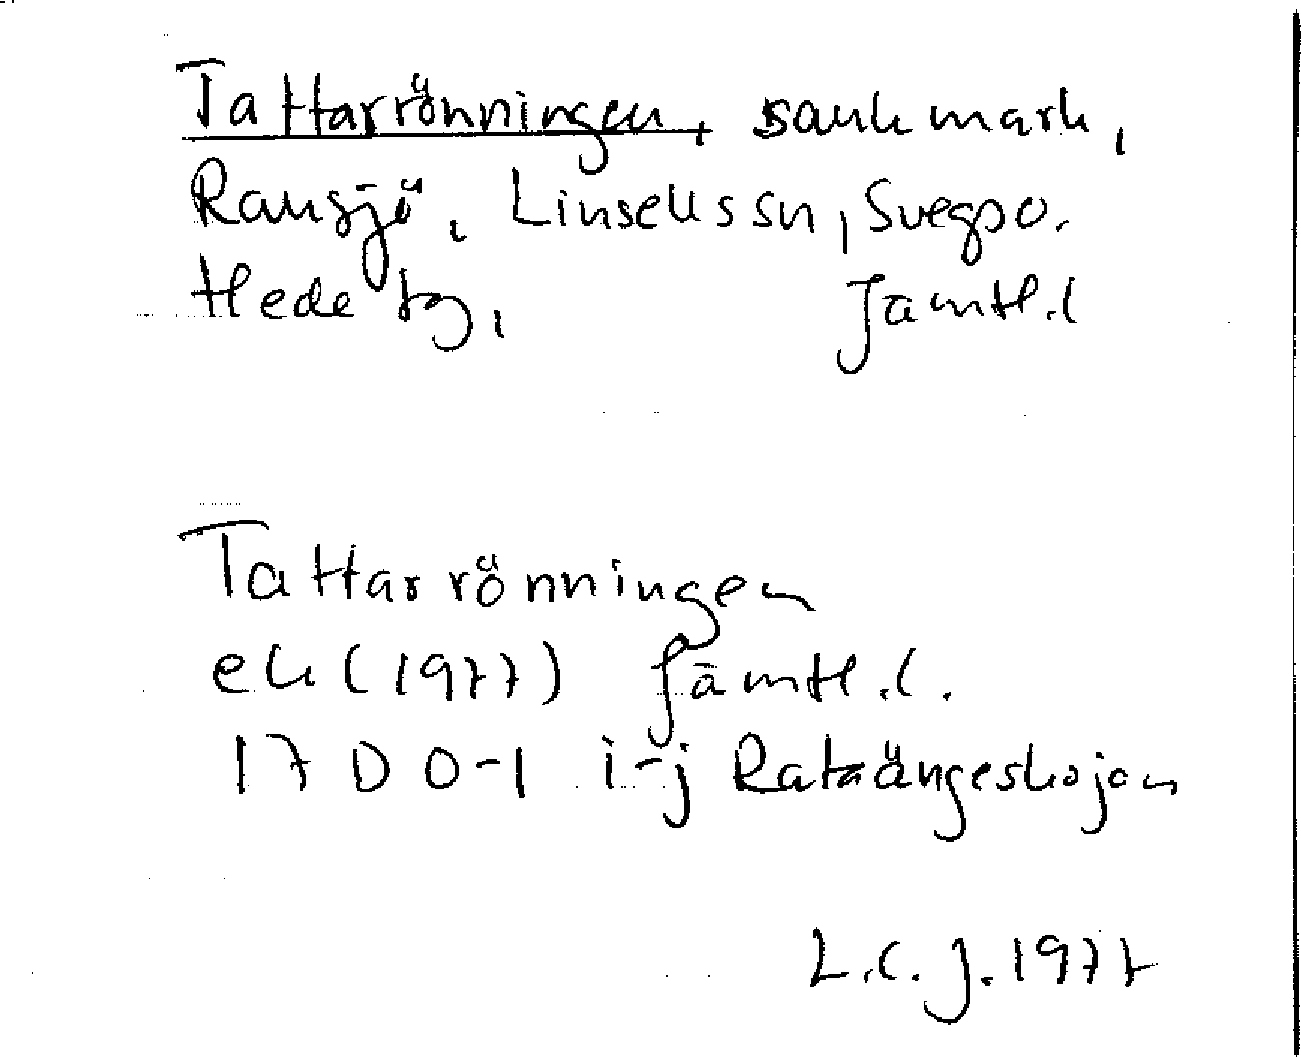 Tattarrönningen, sankmark,
Ransjö, Linsells sn, Svegs po.
Hede tg, Jämtl.l
Tattarrönningen
ek (1977) Jämtl.l.
17 D 0-1 i-j Rataängeskojan
L.C.J. 1977